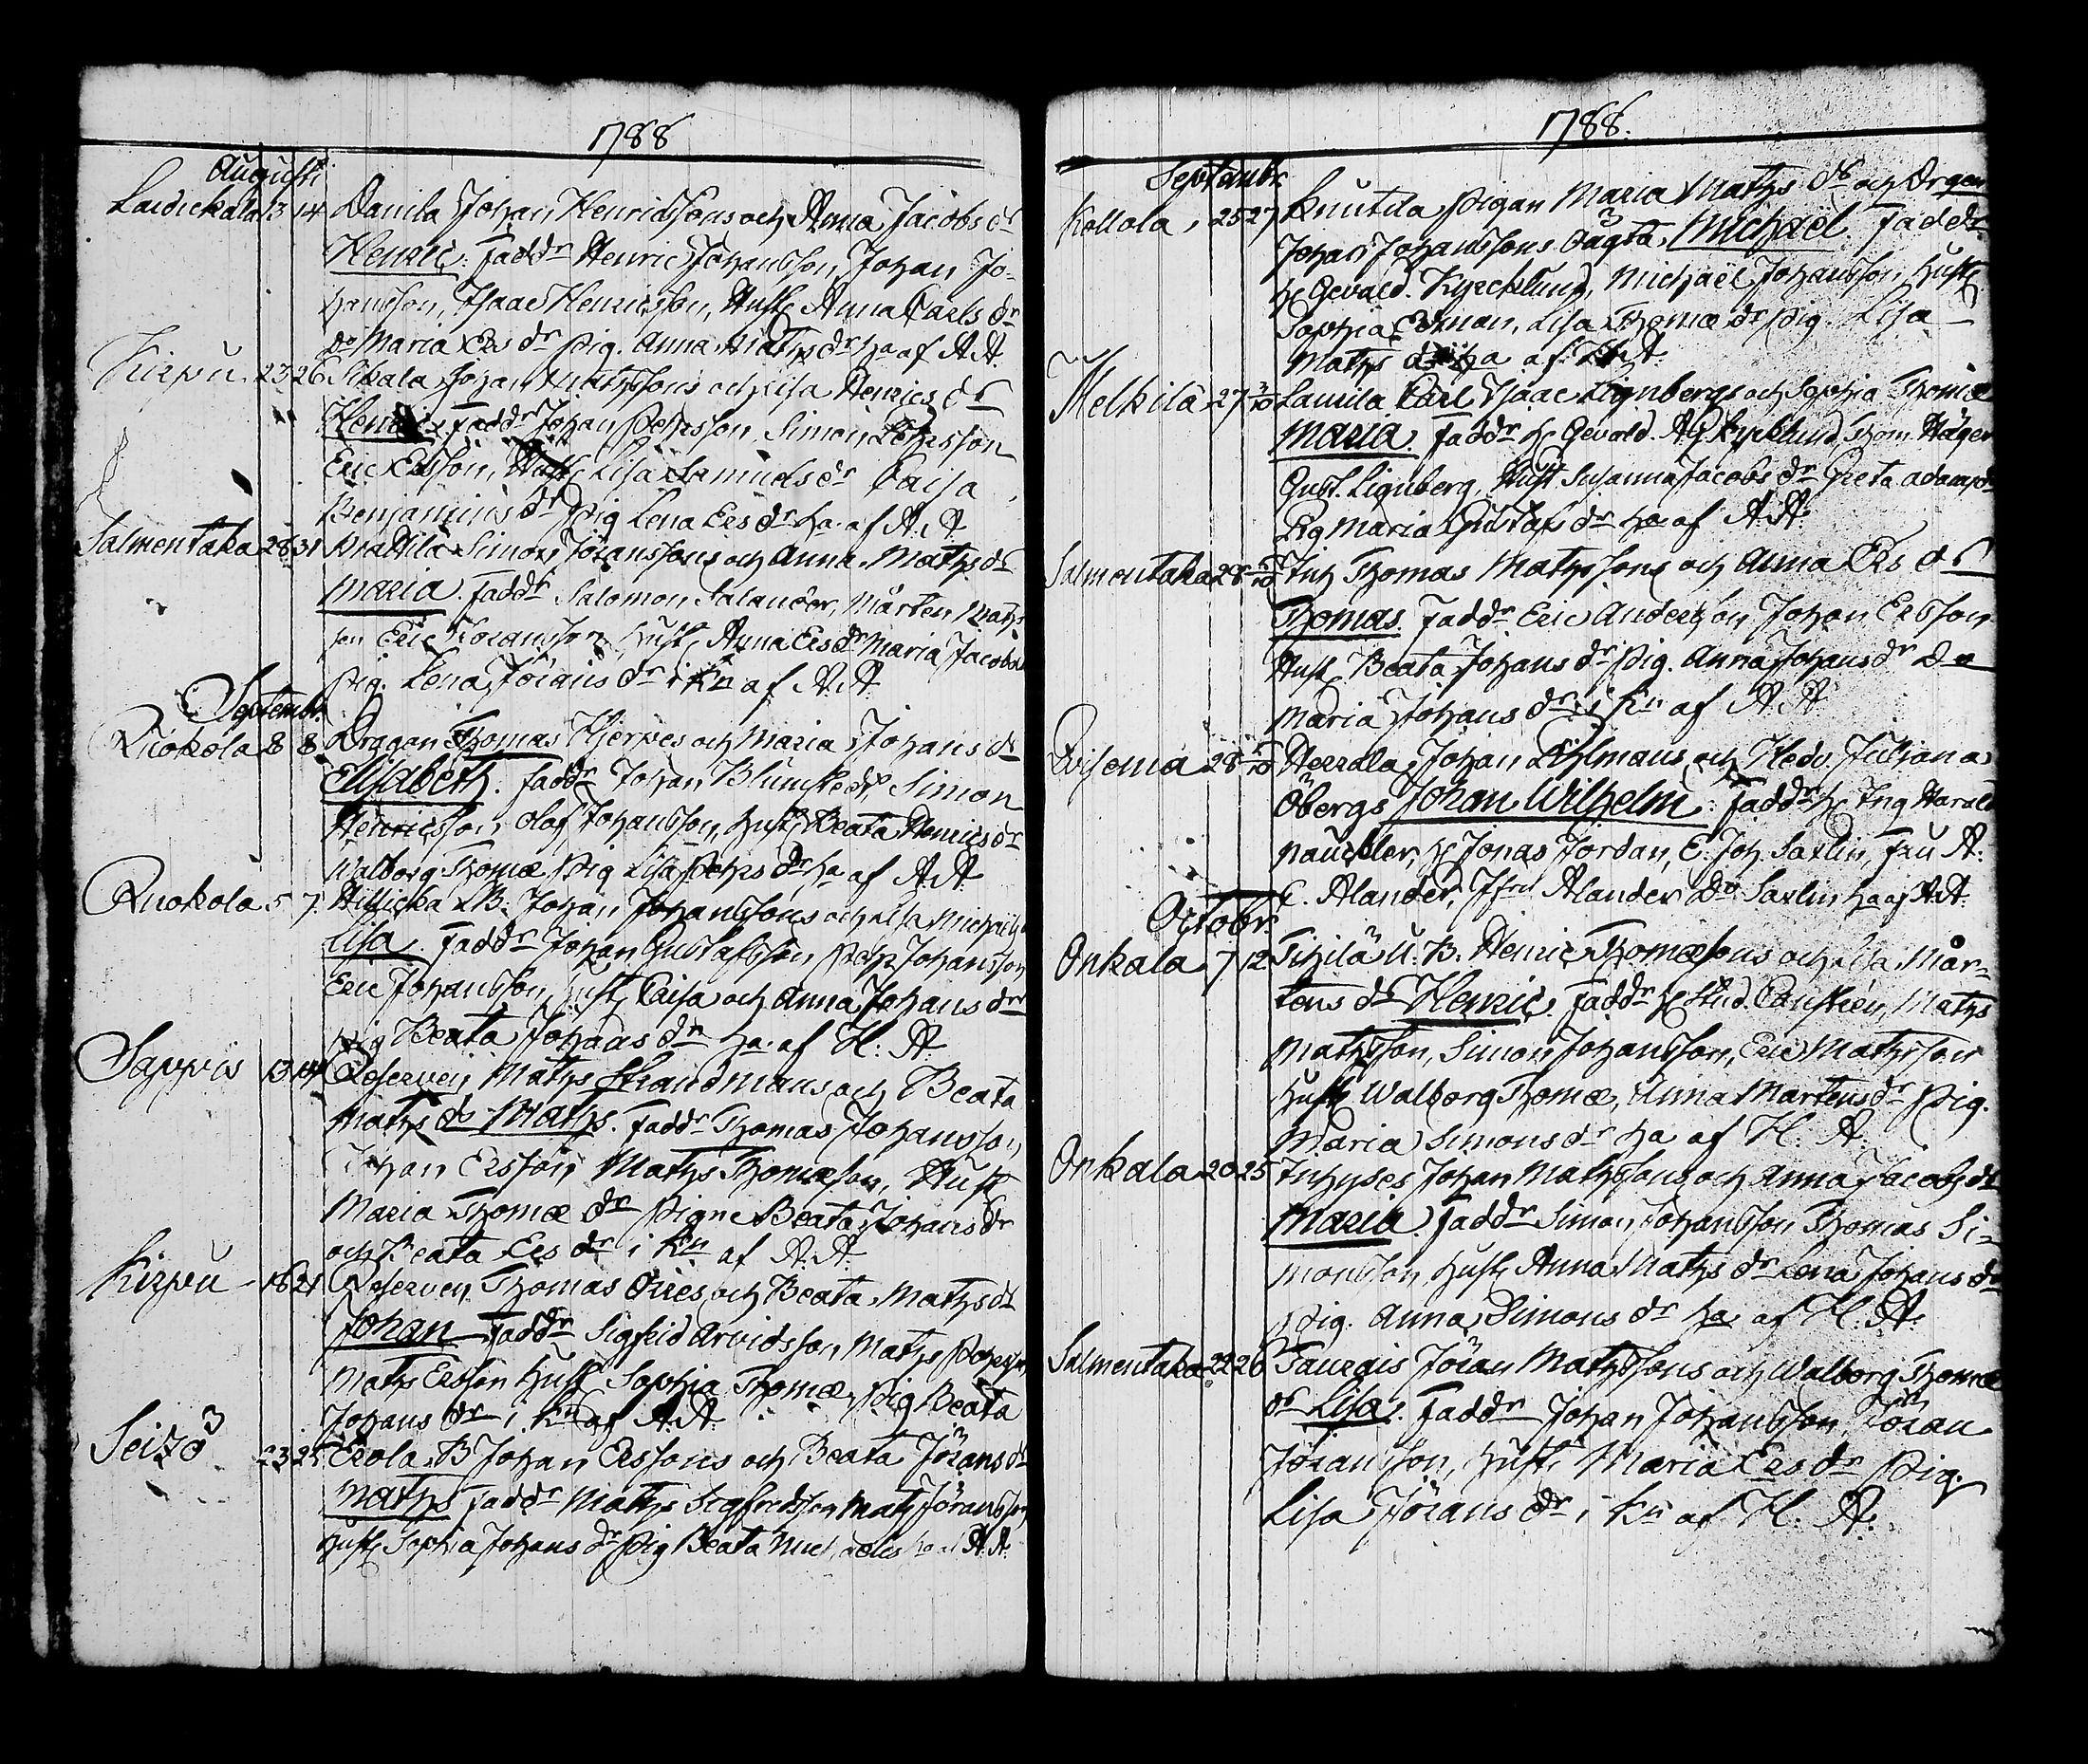 1788
Augusti
Laidickala 13 14 Danila Johan Henricssons och Anna Jacobs dr
Henric. Faddr Henric Johansson, Johan Jo-
hansson, Isaac Henricsson, Hust. Anna Carls dr
Do Maria Ers dr Pig. Anna Maths dr ha af A A.
Kirpu 23 26 Sikala Johan Mathssons och Lisa Henrics dr
Henric. Faddr Johan Pehrsson, Simon Pehrsson
Eric Ersson, Hust. Lisa Samuels dr Caisa
Benjamins dr Pig Lena Ers dr ha af A. A.
Salmentaka 28 31 Mattila Simon Jöranssons och Anna Maths dr
Maria. Faddr Salomon Salander, Mårten Maths
son Eric Jöransson Hust. Anna Ers dr Maria Jacobs dr
Pig. Lena Jörans dr i Kn af A A.
Septembr.
Riokola 8 8 Dragon Thomas Hjerpes och Maria Johans dr
Elisabeth. Faddr Johan Blumstedt, Simon
Henricsson, Olof Johansson, Hust. Beata Henrics dr
Walborg Thomæ Pig Lisa Pehrs dr ha af A A.
Ruokola 5 7 Hillicka B. Johan Johanssons och Lisa Michaels
Lisa. Faddr Johan Gustafsson, Pehr Johansson
Eric Johansson, Hust. Caisa och Anna Johans dr
Pig Beata Johans dr ha af H. A.
Sappis 13 14 Reserven Maths Strandmans och Beata
Maths dr Maths. Faddr Thomas Johansson,
Johan Ersson, Maths Thomæson, Hust.
Maria Thomæ dr Pigne Beata Johans dr
och Beata Ers dr i Kn af A. A.
Kirpu 18 21 Reserven Thomas Öries och Beata Maths dr
Johan Faddr Sigfrid Arvidsson, Maths Pehrsson
Maths Ersson Hust Sophia Thomæ, Pig Beata
Johans dr i Kn af A. A.
Seizo 23 25 Erola B Johan Erssons och Beata Jörans dr
Maths Faddr Maths Sigfredsson Maths Jöransson
Hust. Sophia Johans dr Pig Beata Michaelis ha af A. A.
1788.
Septembr.
Kollola 25 27 Knutila Pigan Maria Maths dr och Dragon
Johan Johanssons Oägta, Michaël. Faddr.
H. Gevald. Kyrcklund, Michaël Johansson, Hust.
Sophia Edman, Lisa Thomæ dr Pig. Lisa
Maths dr ha af A.
Melkilä 27 Laurila Carl Isaac Lignbergs och Sophia Thomæ
Maria. Faddr H. Gevald. AG Kyrklund, Thom. Häger
Gust. Lignberg, Hust. Susanna Jacobs dr Greta Adams dr
Pig Maria Gustafs dr ha af A. A.
Salmentaka 28 Inh Thomas Mathssons och Anna Ers dr
Thomas. Faddr Eric Andersson Johan Ersson
Hust. Beata Johans dr Pig. Anna Johans dr Do
Maria Johans dr i Kn af A. A.
28 Herrala Johan Lihlmans och Hedv. Juliana
Öbergs Johan Wilhelm. Faddr H. Ing Harald
Nauckler, H. Jonas Jordan, E. Joh Saxlin, Fru A.
C. Alander, Jfru Alander Do Saxlin, ha af A A.
Octobr.
Onkala 7 12 Tihilä U. B. Henric Thomæsons och Lisa Mår-
tens dr Henric. Faddr H. Stud. , Maths
Mathsson, Simon Johansson, Eric Mathsson
Hust. Walborg Thomæ, Anna Mårtens dr Pig.
Maria Simons dr ha af H. A.
Onkala 20 25 Inhyses Johan Mathssons och Anna Jacobs dr
Maria. Faddr Simon Johansson Thomas Si-
monsson, Hust. Anna Maths dr Lena Johans dr
Pig. Anna Simons dr ha af H. A.
Salmentaka 22 26 Taurais Jöran Mathssons och Walborg Thomæ
dr Lisa. Faddr Johan Johansson, Jöran
Jöransson, Hust. Maria Ers dr Pig.
Lisa Jörans dr i Kn af H. A.